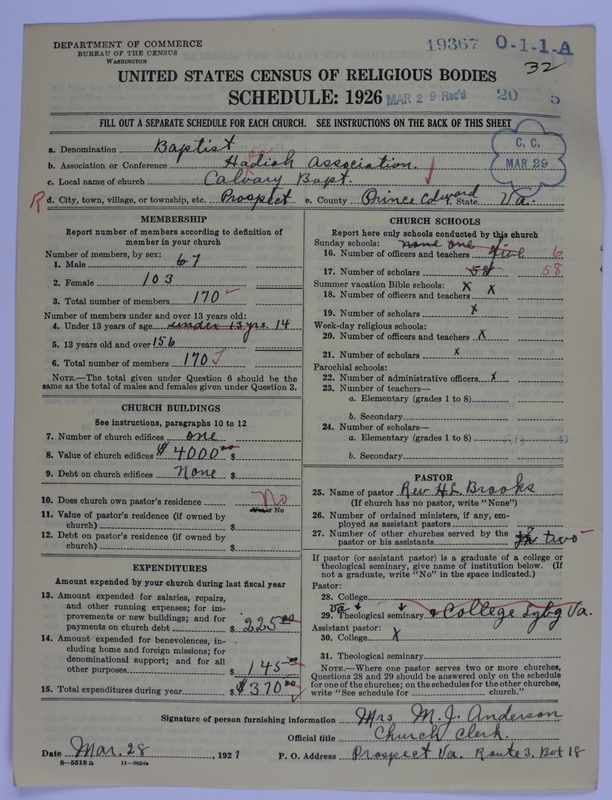 DEPARTMENT OF COMMERCE
BUREAU OF THE CENSUS
WASHINGTON
19367 0-1-1-A
32
UNITED STATES CENSUS OF RELIGIOUS BODIES
SCHEDULE: 1926 MAR 29 Rec'd 20 5
FILL OUT A SEPARATE SCHEDULE FOR EACH CHURCH. SEE INSTRUCTIONS ON THE BACK OF THIS SHEET
C. C.
MAR 29
a. Denomination Baptist
b. Association or Conference Association.
c. Local name of church Calvary Bapt.
R d. City, town, village, or township, etc. Prospect e. County Prince Edward State Va.
MEMBERSHIP
Report number of members according to definition of
member in your church
Number of members, by sex:
1. Male 67
2. Female 103
3. Total number of members 170
Number of members under and over 13 years old:
4. Under 13 years of age under 13 yrs. 14
5. 13 years old and over 156
6. Total number of members 170
NOTE.—The total given under Question 6 should be the
same as the total of males and females given under Question 3.
CHURCH BUILDINGS
See instructions, paragraphs 10 to 12
7. Number of church edifices one
8. Value of church edifices $ 4000.00 $
9. Debt on church edifices None $
10. Does church own pastor's residence No
or No
11. Value of pastor's residence (if owned by
church) $
12. Debt on pastor's residence (if owned by
church) $
EXPENDITURES
Amount expended by your church during last fiscal year
13. Amount expended for salaries, repairs,
and other running expenses; for im-
provements or new buildings; and for
payments on church debt $ 225.00
14. Amount expended for benevolences, in-
cluding home and foreign missions; for
denominational support; and for all
other purposes $ 145.00
15. Total expenditures during year $ $370.00
CHURCH SCHOOLS
Report here only schools conducted by this church
Sunday schools: none one
16. Number of officers and teachers five 6
17. Number of scholars 58 58
Summer vacation Bible schools: x
18. Number of officers and teachers x
19. Number of scholars x
Week-day religious schools:
20. Number of officers and teachers x
21. Number of scholars x
Parochial schools:
22. Number of administrative officers x
23. Number of teachers—
a. Elementary (grades 1 to 8)
b. Secondary
24. Number of scholars—
a. Elementary (grades 1 to 8)
b. Secondary
PASTOR
25. Name of pastor Rev H.L. Brooks
(If church has no pastor, write "None")
26. Number of ordained ministers, if any, em-
ployed as assistant pastors
27. Number of other churches served by the
pastor or his assistants two
If pastor (or assistant pastor) is a graduate of a college or
theological seminary, give name of institution below. (If
not a graduate, write "No" in the space indicated.)
Pastor:
28. College
Va
29. Theological seminary & College Lybg Va.
Assistant pastor:
30. College X
31. Theological seminary
NOTE.—Where one pastor serves two or more churches,
Questions 28 and 29 should be answered only on the schedule
for one of the churches; on the schedules for the other churches,
write "See schedule for church."
Signature of person furnishing information Mrs M. J. Anderson
Official title Church Clerk.
Date Mar. 28, 1927 P. O. Address Prospect Va. Route 3. Box 18
8-5518 a 11-9064a